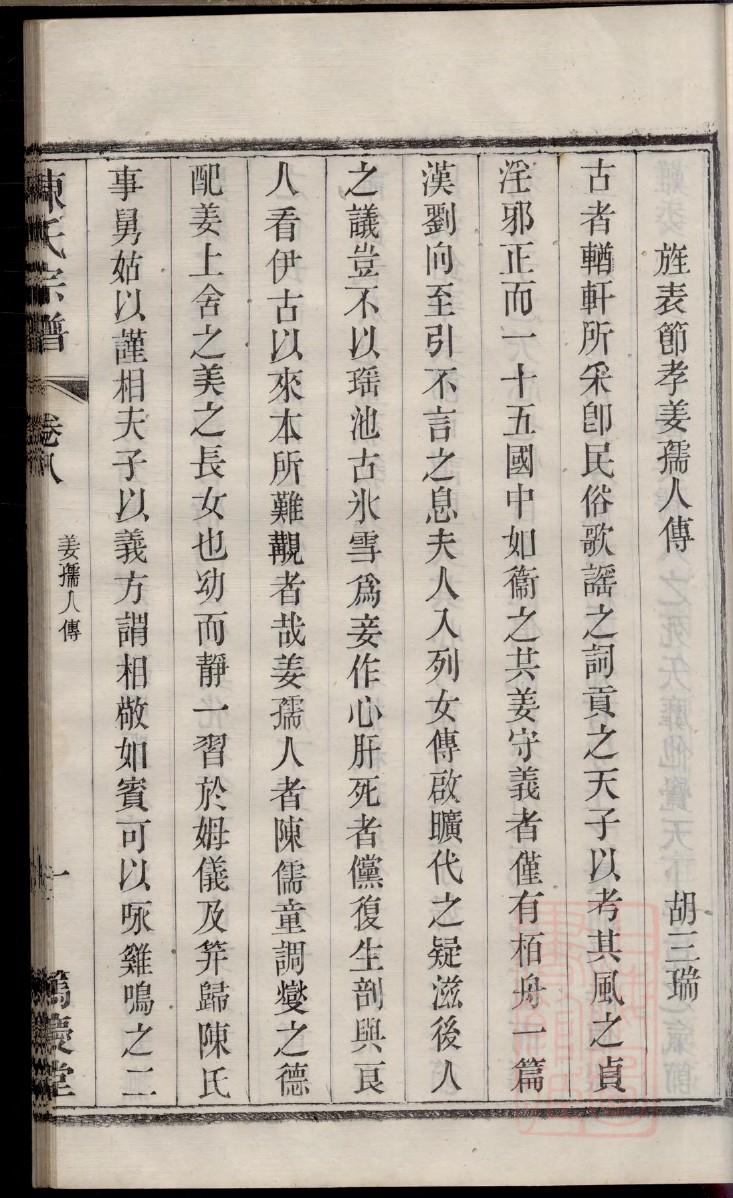 旌表節孝姜孺人傳
胡三瑞
古者輶軒所采卽民俗歌謡之詞貢之天子以考其風之貞
淫邪正而一十五國中如衞之共姜守義者僅有栢舟一篇
漢劉向至引不言之息夫人入列女傳啟曠代之疑滋後人
之議豈不以瑶池古氷雪爲妾作心肝死者儻復生剖與良
人看伊古以來本所難覯者哉姜孺人者陳儒童調爕之德
配姜上舍之美之長女也幼而靜一習於姆儀及笄歸陳氏
事舅姑以謹相夫子以義方謂相敬如賓可以咏雞鳴之二
陳氏宗譜
卷八
姜孺人傳
一
篤慶堂